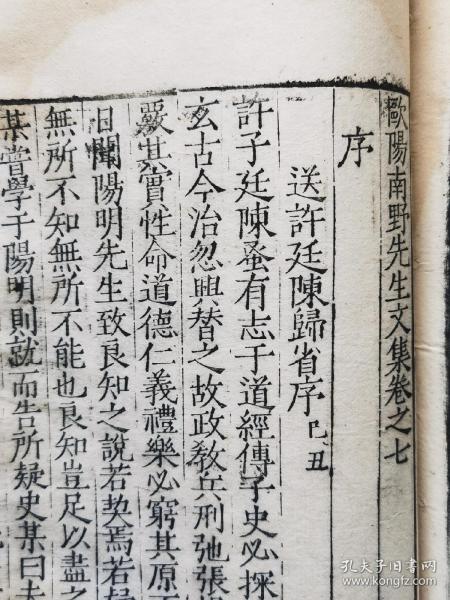 歐陽南野先生文集卷之七
序
送許廷陳歸省序 己丑
許子廷陳蚤有志于道經傳子史必探
玄古今治忽興替之故政敎兵刑弛張
覈其實性命道德仁義禮樂必窮其原
日聞陽明先生致良知之說若契焉若
無所不知無所不能也良知豈足以盡之
某嘗學于陽明則就而告所疑史某曰夫
孔夫子旧书网